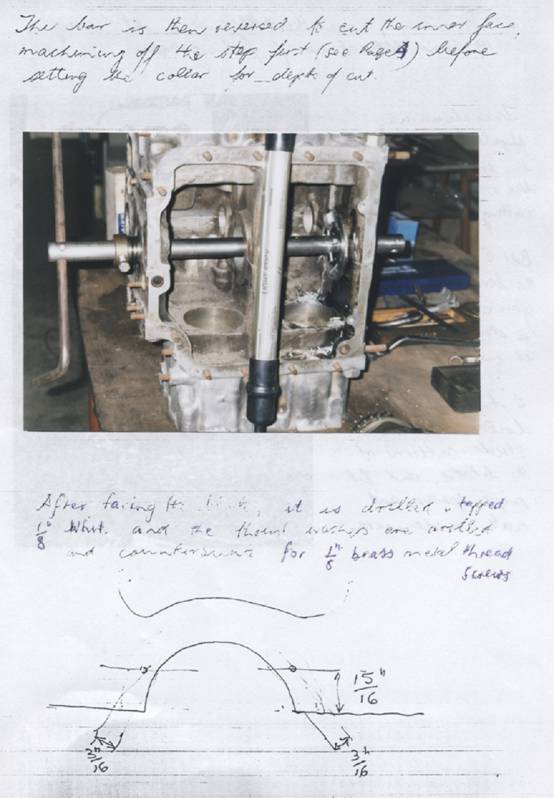 The bar is then reversed to cut the inner face,
machining off the step first (see Page 4) before
setting the collar for depth of cut.
After facing the, it is drilled & tapped
1/8" Whit. and the thrust washers are drilled
and countersunk for 1/8" brass metal thread
screws
15/16"
3/16"
3/16"